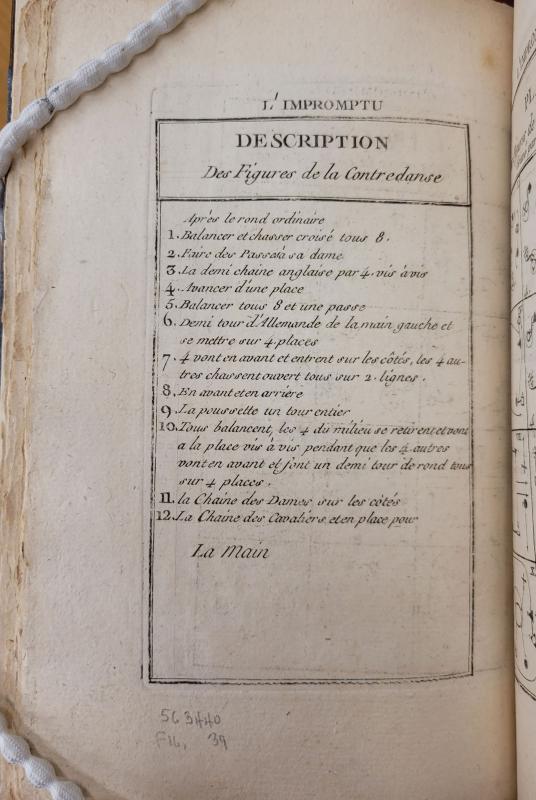 L'IMPROMPTU
DESCRIPTION
Des Figures de la Contredanse
Après le rond ordinaire
1. Balancer et chasser croisé tous 8.
2. Faire des Passes à sa dame
3. La demi chaine anglaise par 4. vis à vis
4. Avancer d'une place
5. Balancer tous 8 et une passe
6. Demi tour d'Allemande de la main gauche et
se mettre sur 4. places
7. 4 vont en avant et entrent sur les côtés, les 4 au-
tres chassent ouvert tous sur 2. lignes.
8. En avant et en arriere
9. La poussette un tour entier
10. Tous balancent, les 4 du milieu se retirent et vont
a la place vis à vis pendant que les 4. autres
vont en avant et font un demi tour de rond tous
sur 4 places.
11. la Chaine des Dames sur les côtés
12. La Chaine des Cavaliers et en place pour
La Main
563440
F16. 39